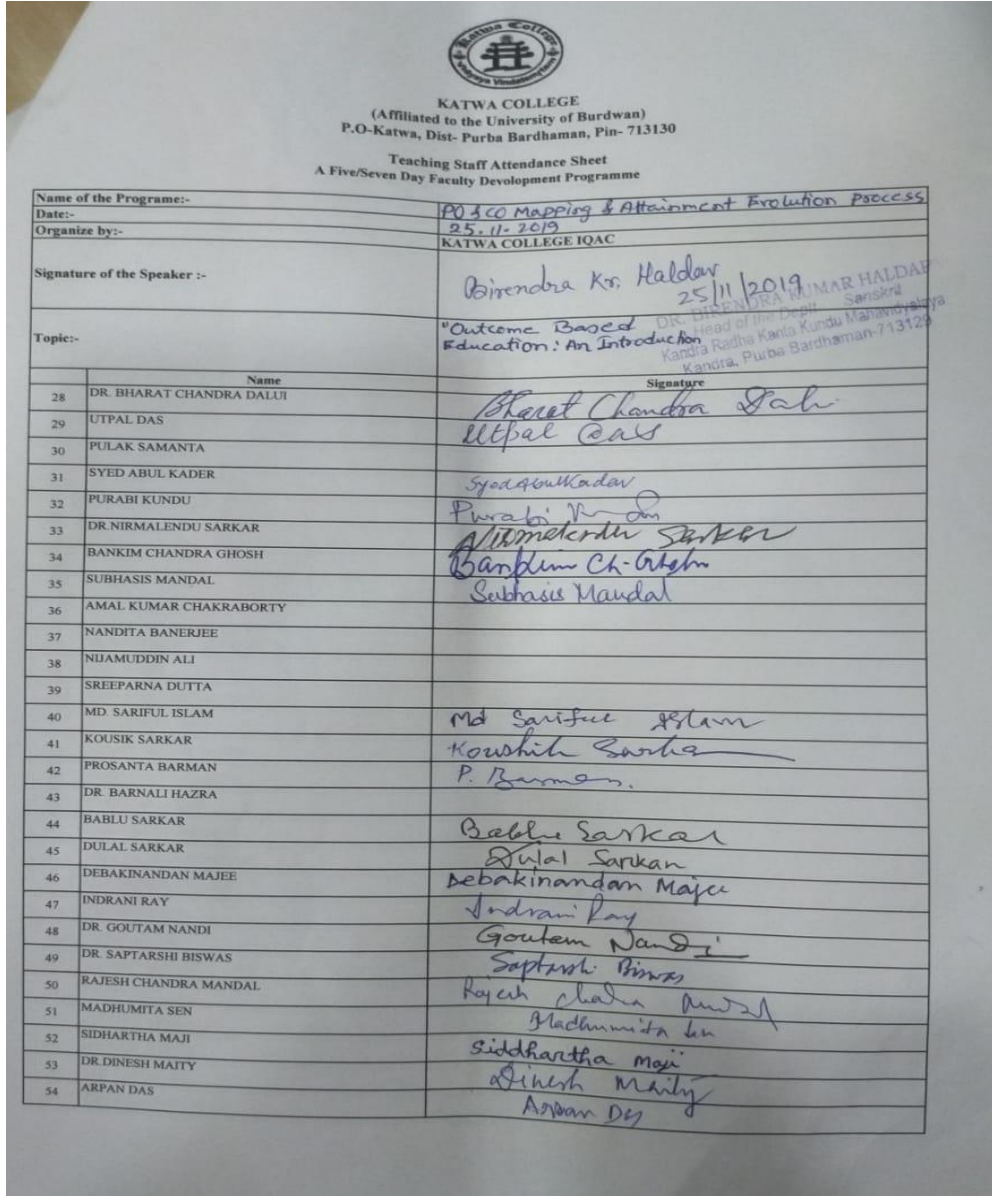 Katwa College
Vidyaya Vindatemrtam
KATWA COLLEGE
(Affiliated to the University of Burdwan)
P.O-Katwa, Dist- Purba Bardhaman, Pin- 713130
Teaching Staff Attendance Sheet
A Five/Seven Day Faculty Devolopment Programme
Name of the Programe:- PO & CO Mapping & Attainment Evolution Process
Date:- 25.11.2019
Organize by:- KATWA COLLEGE IQAC
Signature of the Speaker :- Birendra Kr. Haldar
25/11/2019
DR. BIRENDRA KUMAR HALDAR
Head of the Deptt Sanskrit
Kandra Radha Kanta Kundu Mahavidyalaya
Kandra, Purba Bardhaman-713129
Topic:- "Outcome Based
Education: An Introduction
Name Signature
28 DR. BHARAT CHANDRA DALUI Bharat Chandra
29 UTPAL DAS Utpal Das
30 PULAK SAMANTA
31 SYED ABUL KADER Syed Abul Kader
32 PURABI KUNDU Purabi
33 DR.NIRMALENDU SARKAR Nirmalendu Sarkar
34 BANKIM CHANDRA GHOSH Bankim Ch-Ghosh
35 SUBHASIS MANDAL Subhasis Mandal
36 AMAL KUMAR CHAKRABORTY
37 NANDITA BANERJEE
38 NIJAMUDDIN ALI
39 SREEPARNA DUTTA
40 MD. SARIFUL ISLAM Md Sariful Islam
41 KOUSIK SARKAR Koushik Sarka
42 PROSANTA BARMAN P. Barman.
43 DR. BARNALI HAZRA
44 BABLU SARKAR Bablu Sarkar
45 DULAL SARKAR Dulal Sarkar
46 DEBAKINANDAN MAJEE Debakinandan Majee
47 INDRANI RAY Indrani Ray
48 DR. GOUTAM NANDI Goutam Nandi
49 DR. SAPTARSHI BISWAS Saptarshi Biswas
50 RAJESH CHANDRA MANDAL Rajesh
51 MADHUMITA SEN Madhumita Sen
52 SIDHARTHA MAJI Siddhartha Maji
53 DR.DINESH MAITY Dinesh Maity
54 ARPAN DAS Arpan Das